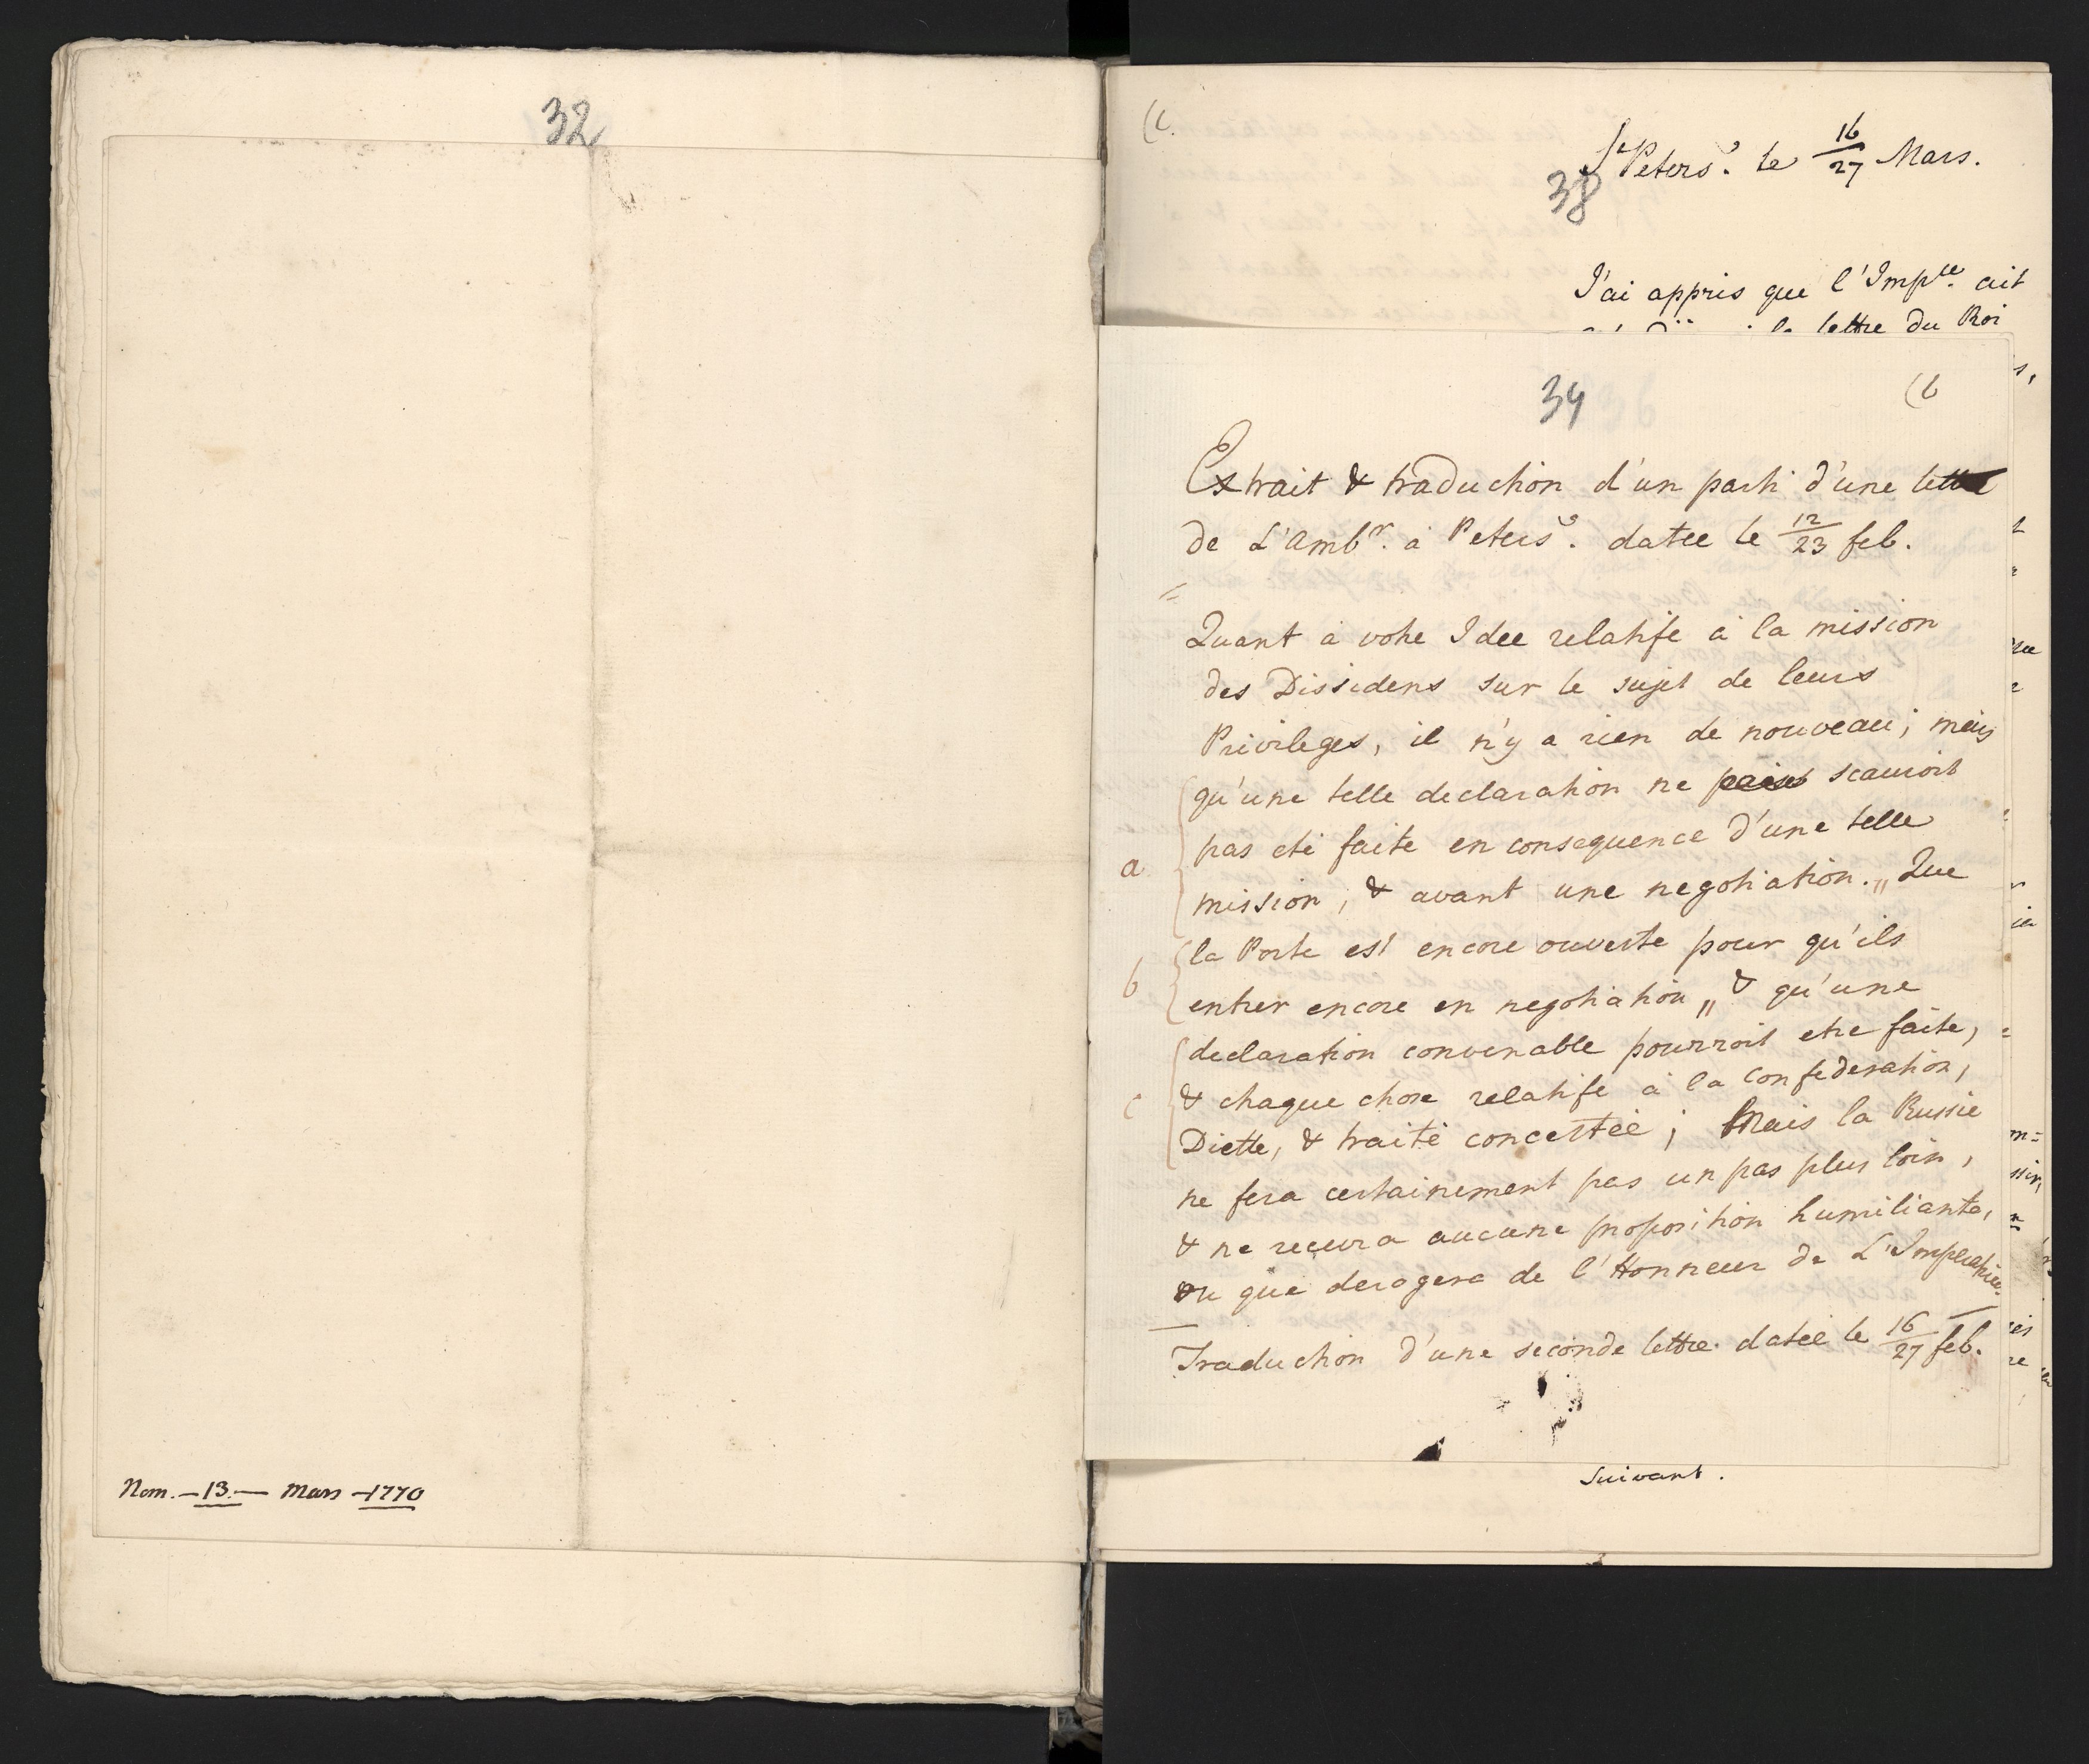 32
Nom. — 13. — Mars — 1770
(c.
St Peters.^g le 16/27 Mars.
38
J'ai appris que l'Imp^ce. ait
lettre du Roi
34
(b
Extrait & traduction d'un parti d'une lettre
de L'Amb^r. à Peters^g. datee le 12/23 feb.
Quant à votre Idee relatife à la mission
des Dissidens sur le sujet de leurs
Privileges, il n'y a rien de nouveau; mais
qu'une telle declaration ne scauroit
pas eté faite en consequence d'une telle
a
mission, & avant une negotiation. „ Que
la Porte est encore ouverte pour qu'ils
b
entrer encore en negotiation „ & qu'une
declaration convenable pourroit etre faite,
c
& chaque chose relatife à la confederation,
Diette, & traité concertée; Mais la Russie
ne fera certainement pas un pas plus loin,
& ne recevra aucune proposition humiliante,
ou que derogera de l'Honneur de L'Imperatrice.
Traduction d'une seconde lettre. datée le 16/27 feb.
suivant.